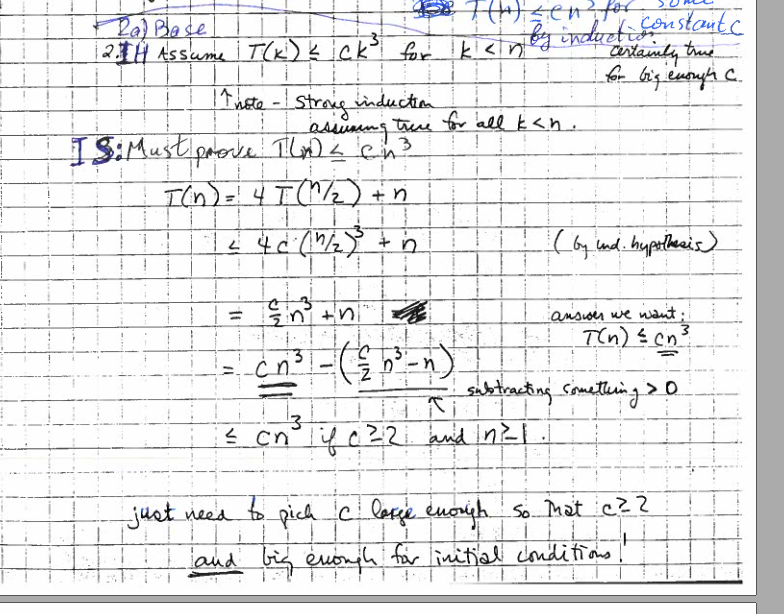 T(n) ≤ cn³ for some
constant c
2a) Base
by induction
2. IH Assume T(k) ≤ ck³ for k < n
certainly true
for big enough c.
↑ note - strong induction
assuming true for all k < n.
IS: Must prove T(n) ≤ cn³
T(n) = 4T(n/2) + n
≤ 4c(n/2)³ + n (by ind. hypothesis)
= c/2 n³ + n
answer we want:
T(n) ≤ cn³
= cn³ - (c/2 n³ - n)
↑ subtracting something > 0
≤ cn³ if c ≥ 2 and n ≥ 1.
just need to pick c large enough so that c ≥ 2
and big enough for initial conditions!